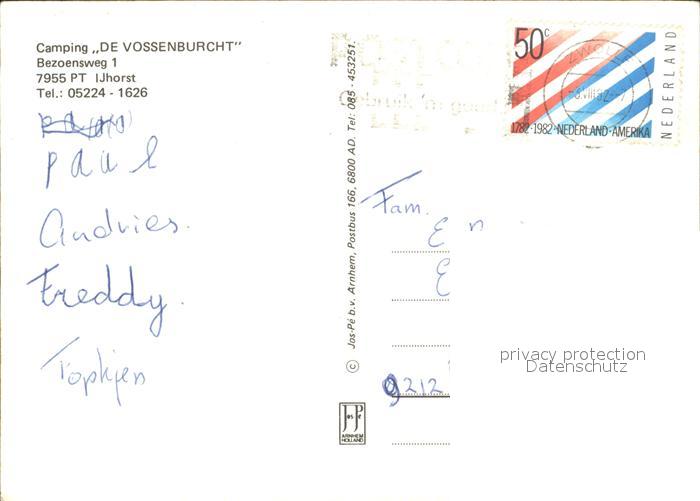 Camping „DE VOSSENBURCHT”
Bezoensweg 1
7955 PT IJhorst
Tel.: 05224 - 1626
paul
Andries.
Freddy.
© Jos-Pé b.v. Arnhem, Postbus 166, 6800 AD. Tel: 085 - 453251.
Jos Pé
ARNHEM
HOLLAND
50c
1782·1982·NEDERLAND-AMERIKA
NEDERLAND
Fam.
E n
E
9212
privacy protection
Datenschutz